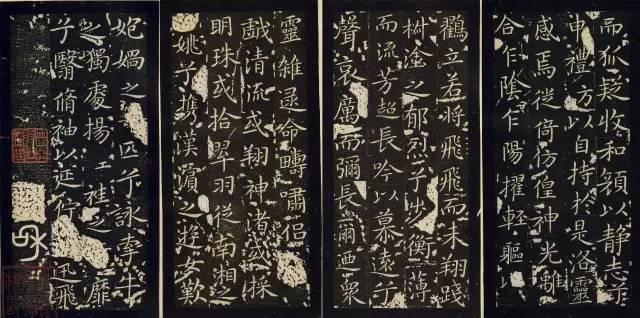 而狐疑收和顏以静志兮
申禮防以自持於是洛靈
感焉徙倚仿偟神光離
合乍陰乍陽擢輕軀以
鸖立若將飛飛而未翔踐
椒塗之郁烈兮步衡薄
而流芳超長吟以慕遠兮
聲哀厲而彌長爾迺衆
靈雜遝命疇嘯侶
戲清流或翔神渚或採
明珠或拾翠羽從南湘之
姚兮携漢濱之遊女歎
媧之匹兮詠牽牛
之獨處揚輕袿之靡
兮翳脩袖以延佇迅飛